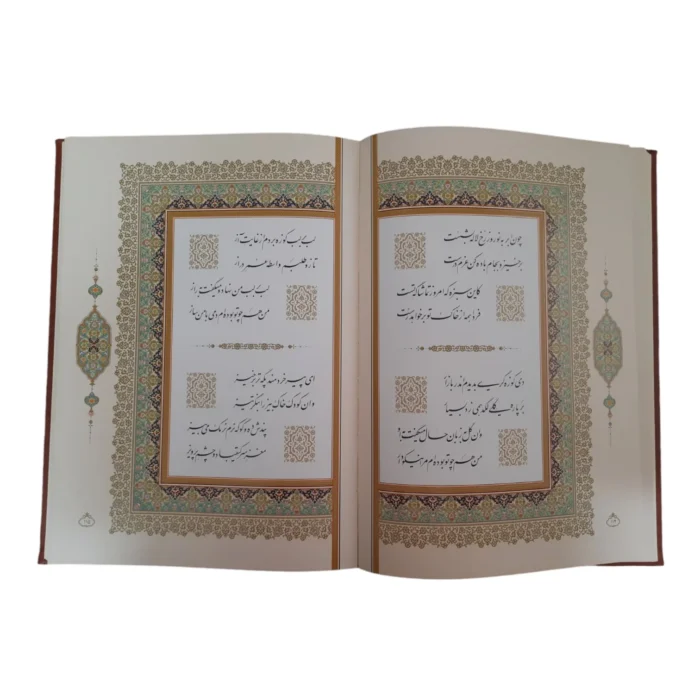 چون ابر به نوروز رخ لاله بشست
برخیز و بجام باده کن عزم درست
کاین سبزه که امروز تماشاگه تست
فردا همه از خاک تو برخواهد رست
دی کوزه گری بدیدم اندر بازار
بر پاره گلی لگد همی زد بسیار
وان گل بزبان حال با او میگفت
من همچو تو بوده‌ام مرا نیکو دار
لب بر لب کوزه بردم از غایت آز
تا زو طلبم واسطه عمر دراز
لب بر لب من نهاد و میگفت براز
من همچو تو بوده‌ام دمی با من ساز
ای پیر خردمند پگه تر برخیز
وان کودک خاک بیز را بنگر تیز
پندش ده و گو که نرم نرمک می بیز
مغز سر کیقباد و چشم پرویز